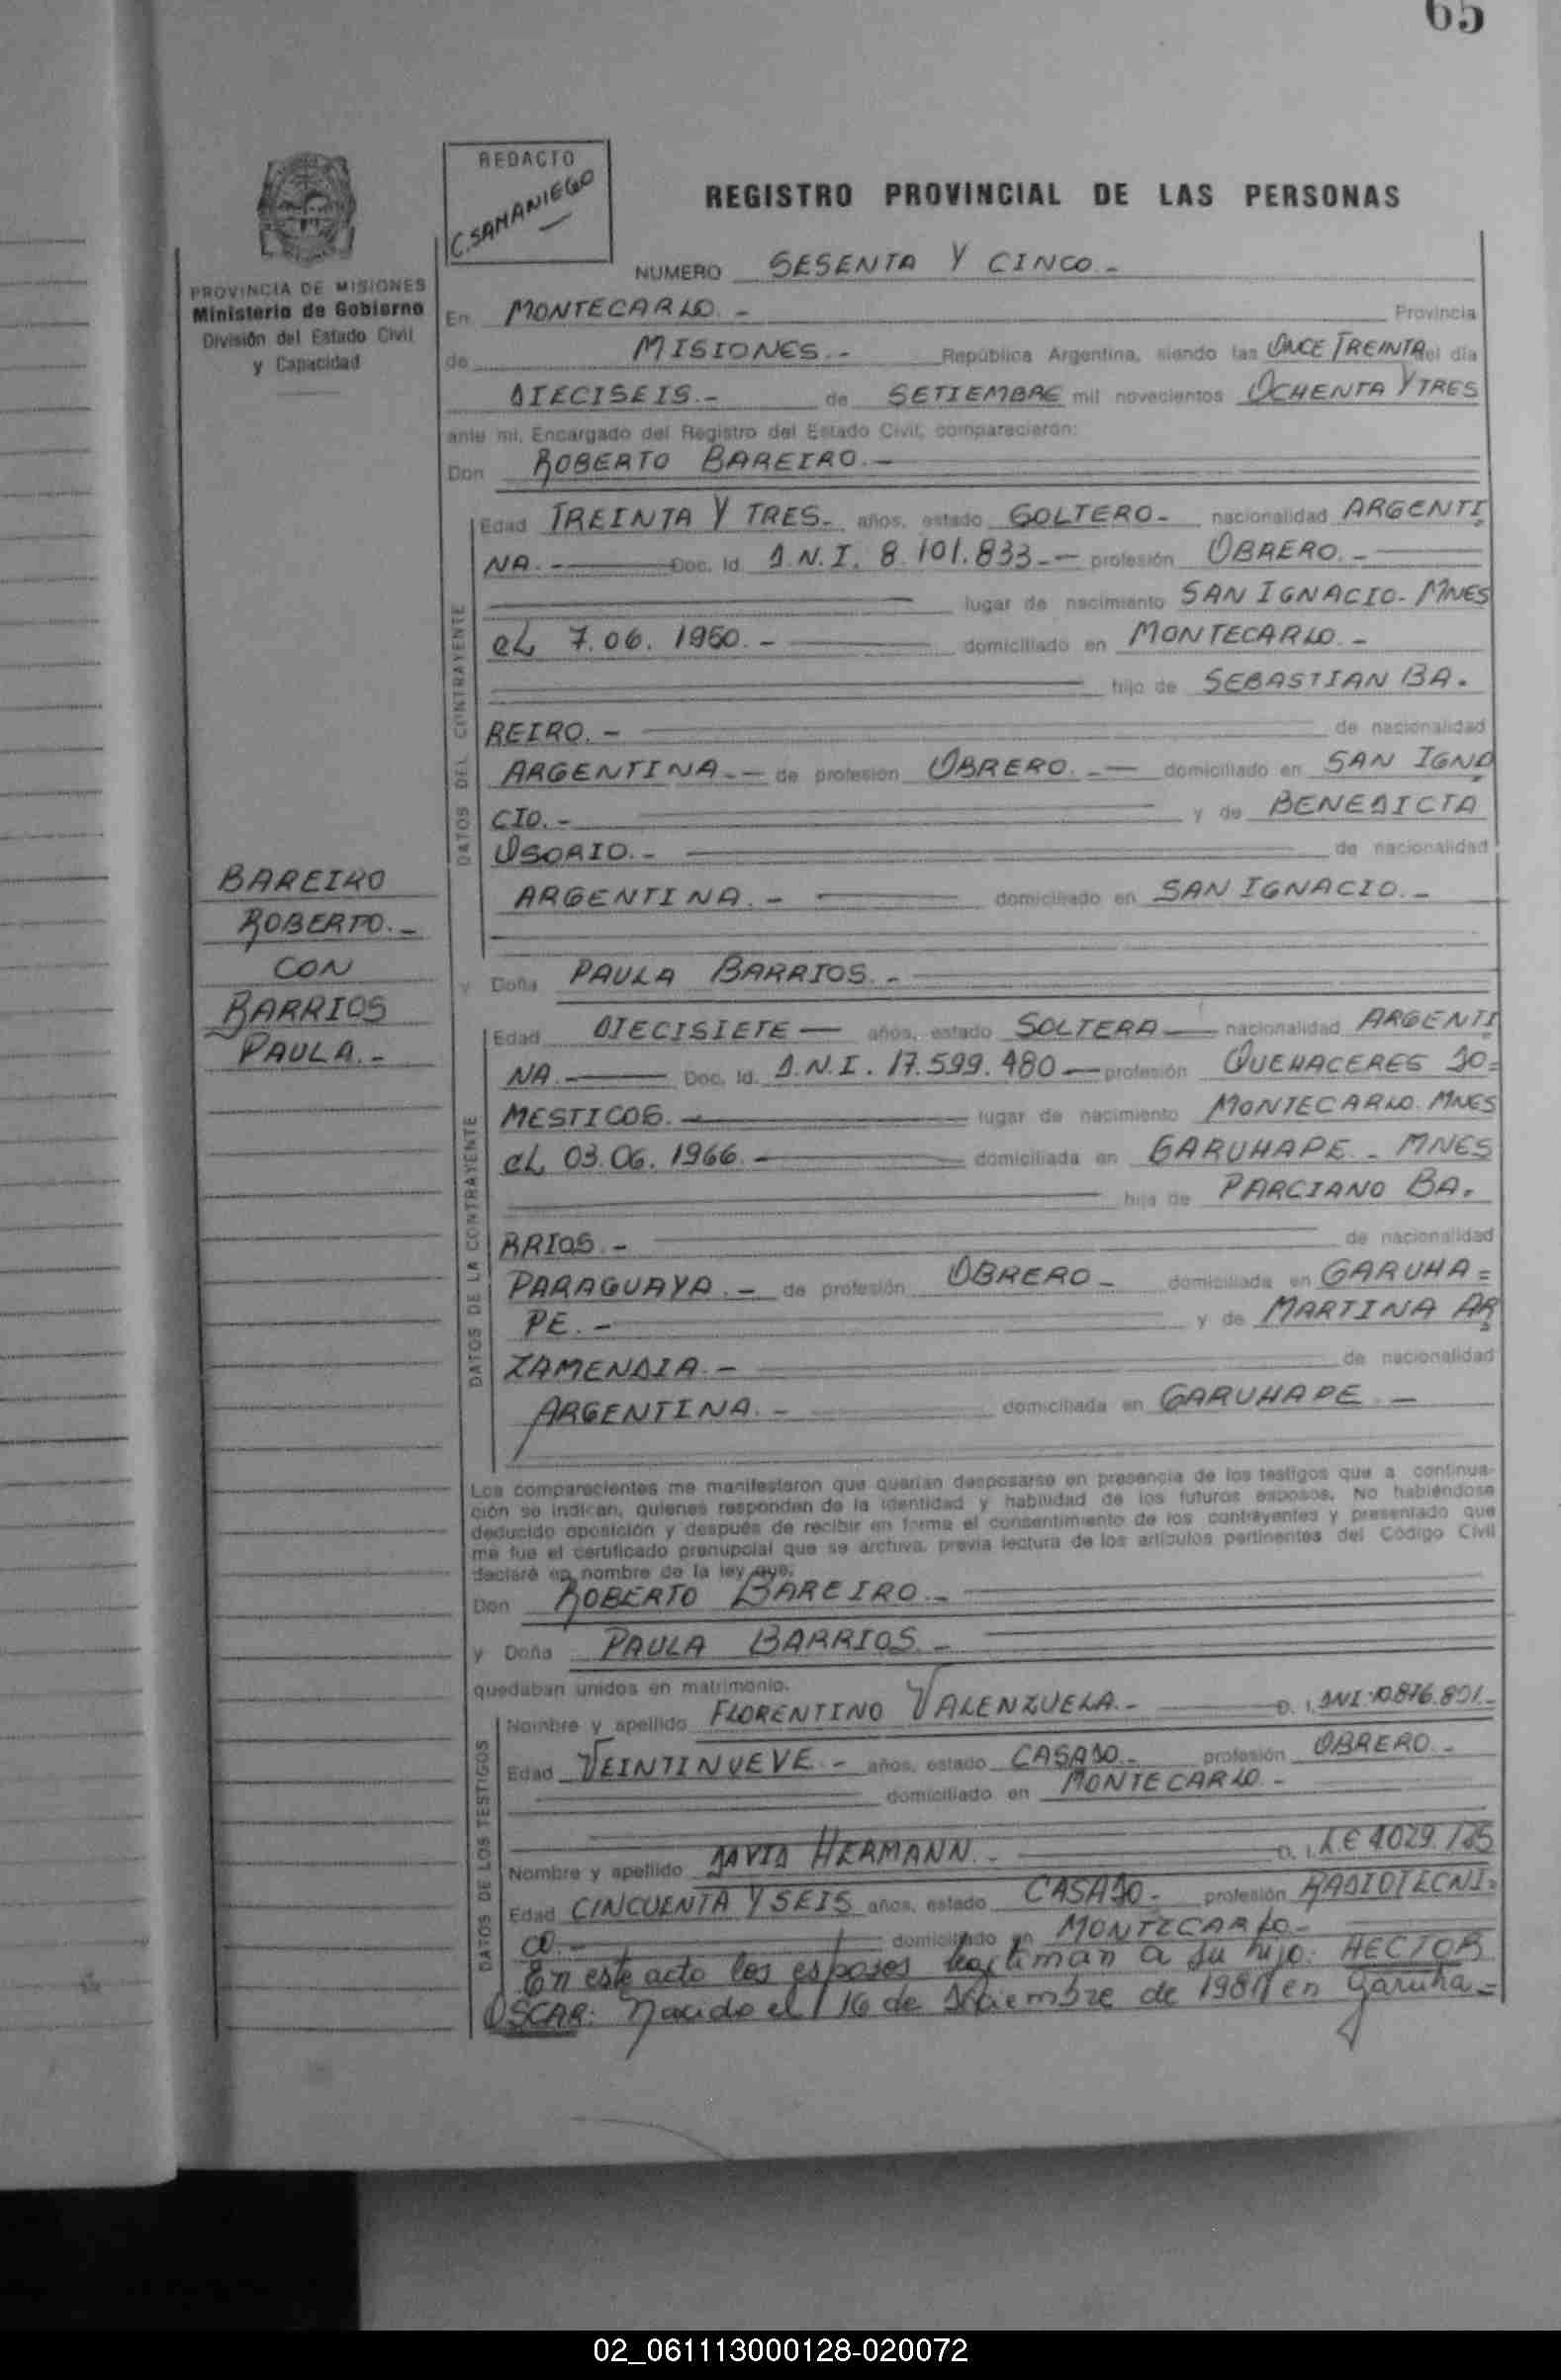 65
REDACTO
C. SAMANIEGO
REGISTRO PROVINCIAL DE LAS PERSONAS
PROVINCIA DE MISIONES
Ministerio de Gobierno
División del Estado Civil
y Capacidad
NUMERO SESENTA Y CINCO.-
En MONTECARLO.- Provincia
de MISIONES.- República Argentina, siendo las ONCE TREINTA del día
DIECISEIS.- de SETIEMBRE mil novecientos OCHENTA Y TRES
ante mi, Encargado del Registro del Estado Civil, comparecieron:
Don ROBERTO BAREIRO.-
DATOS DEL CONTRAYENTE
Edad TREINTA Y TRES.- años, estado SOLTERO.- nacionalidad ARGENTI
NA.- Doc. Id. D.N.I. 8.101.833.- profesión OBRERO.-
lugar de nacimiento SAN IGNACIO. MNES
el 7.06.1950.- domiciliado en MONTECARLO.-
hijo de SEBASTIAN BA.
REIRO.- de nacionalidad
ARGENTINA.- de profesión OBRERO.- domiciliado en SAN IGNA
CIO.- y de BENEDICTA
OSORIO.- de nacionalidad
ARGENTINA.- domiciliado en SAN IGNACIO.-
BAREIRO
ROBERTO.-
CON
BARRIOS
PAULA.-
y Doña PAULA BARRIOS.-
DATOS DE LA CONTRAYENTE
Edad DIECISIETE años, estado SOLTERA nacionalidad ARGENTI
NA.- Doc. Id. D.N.I. 17.599.480 profesión QUEHACERES DO=
MESTICOS.- lugar de nacimiento MONTECARLO. MNES
el 03.06.1966.- domiciliada en GARUHAPE - MNES
hija de PARCIANO BA.
RRIOS.- de nacionalidad
PARAGUAYA.- de profesión OBRERO.- domiciliada en GARUHA=
PE.- y de MARTINA AR
ZAMENDIA.- de nacionalidad
ARGENTINA.- domiciliada en GARUHAPE.-
Los comparecientes me manifestaron que querían desposarse en presencia de los testigos que a continua-
ción se indican, quienes responden de la identidad y habilidad de los futuros esposos. No habiéndose
deducido oposición y después de recibir en forma el consentimiento de los contrayentes y presentado que
me fue el certificado prenupcial que se archiva, previa lectura de los artículos pertinentes del Código Civil
declaré en nombre de la ley que:
Don ROBERTO BAREIRO.-
y Doña PAULA BARRIOS.-
quedaban unidos en matrimonio.
DATOS DE LOS TESTIGOS
Nombre y apellido FLORENTINO VALENZUELA.- D. I. DNI. 10.876.801.-
Edad VEINTINUEVE.- años, estado CASADO.- profesión OBRERO.-
domiciliado en MONTECARLO.-
Nombre y apellido DAVID HERMANN.- D. I. L.E
Edad CINCUENTA Y SEIS años, estado CASADO.- profesión RADIOTECNI=
CO.- domiciliado en MONTECARLO.-
En este acto los esposos legitiman a su hijo: HECTOR
OSCAR: Nacido el 16 de Setiembre de 1981 en Garuha=
02_061113000128-020072